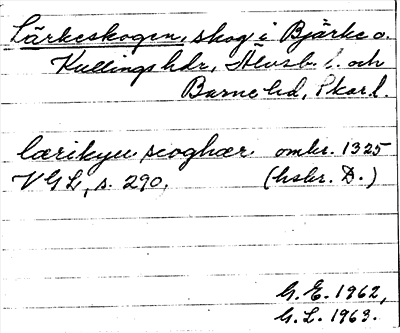 Lärkeskogen, skog i Bjärke o.
Kullings hdr, Älvsb. l. och
Barne hd, Skar. l.
lærikyu scoghær omkr. 1325
VGL, s. 290, (hskr. D.)
G. E. 1962,
G. L. 1963.